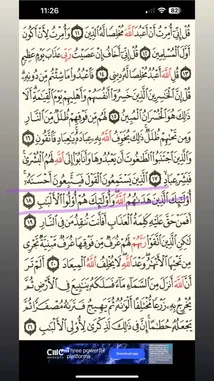 11:26
قُلْ إِنِّىٓ أُمِرْتُ أَنْ أَعْبُدَ ٱللَّهَ مُخْلِصًا لَّهُ ٱلدِّينَ ١١ وَأُمِرْتُ لِأَنْ أَكُونَ
أَوَّلَ ٱلْمُسْلِمِينَ ١٢ قُلْ إِنِّىٓ أَخَافُ إِنْ عَصَيْتُ رَبِّى عَذَابَ يَوْمٍ عَظِيمٍ
١٣ قُلِ ٱللَّهَ أَعْبُدُ مُخْلِصًا لَّهُۥ دِينِى ١٤ فَٱعْبُدُوا۟ مَا شِئْتُم مِّن دُونِهِۦ
قُلْ إِنَّ ٱلْخَٰسِرِينَ ٱلَّذِينَ خَسِرُوٓا۟ أَنفُسَهُمْ وَأَهْلِيهِمْ يَوْمَ ٱلْقِيَٰمَةِ أَلَا
ذَٰلِكَ هُوَ ٱلْخُسْرَانُ ٱلْمُبِينُ ١٥ لَهُم مِّن فَوْقِهِمْ ظُلَلٌ مِّنَ ٱلنَّارِ
وَمِن تَحْتِهِمْ ظُلَلٌ ذَٰلِكَ يُخَوِّفُ ٱللَّهُ بِهِۦ عِبَادَهُۥ يَٰعِبَادِ فَٱتَّقُونِ
١٦ وَٱلَّذِينَ ٱجْتَنَبُوا۟ ٱلطَّٰغُوتَ أَن يَعْبُدُوهَا وَأَنَابُوٓا۟ إِلَى ٱللَّهِ لَهُمُ ٱلْبُشْرَىٰ
فَبَشِّرْ عِبَادِ ١٧ ٱلَّذِينَ يَسْتَمِعُونَ ٱلْقَوْلَ فَيَتَّبِعُونَ أَحْسَنَهُۥٓ
أُو۟لَٰٓئِكَ ٱلَّذِينَ هَدَىٰهُمُ ٱللَّهُ وَأُو۟لَٰٓئِكَ هُمْ أُو۟لُوا۟ ٱلْأَلْبَٰبِ ١٨
أَفَمَنْ حَقَّ عَلَيْهِ كَلِمَةُ ٱلْعَذَابِ أَفَأَنتَ تُنقِذُ مَن فِى ٱلنَّارِ ١٩
لَٰكِنِ ٱلَّذِينَ ٱتَّقَوْا۟ رَبَّهُمْ لَهُمْ غُرَفٌ مِّن فَوْقِهَا غُرَفٌ مَّبْنِيَّةٌ تَجْرِى
مِن تَحْتِهَا ٱلْأَنْهَٰرُ وَعْدَ ٱللَّهِ لَا يُخْلِفُ ٱللَّهُ ٱلْمِيعَادَ ٢٠ أَلَمْ تَرَ
أَنَّ ٱللَّهَ أَنزَلَ مِنَ ٱلسَّمَآءِ مَآءً فَسَلَكَهُۥ يَنَٰبِيعَ فِى ٱلْأَرْضِ ثُمَّ
يُخْرِجُ بِهِۦ زَرْعًا مُّخْتَلِفًا أَلْوَٰنُهُۥ ثُمَّ يَهِيجُ فَتَرَىٰهُ مُصْفَرًّا ثُمَّ
يَجْعَلُهُۥ حُطَٰمًا إِنَّ فِى ذَٰلِكَ لَذِكْرَىٰ لِأُو۟لِى ٱلْأَلْبَٰبِ ٢١
powerful
platforms